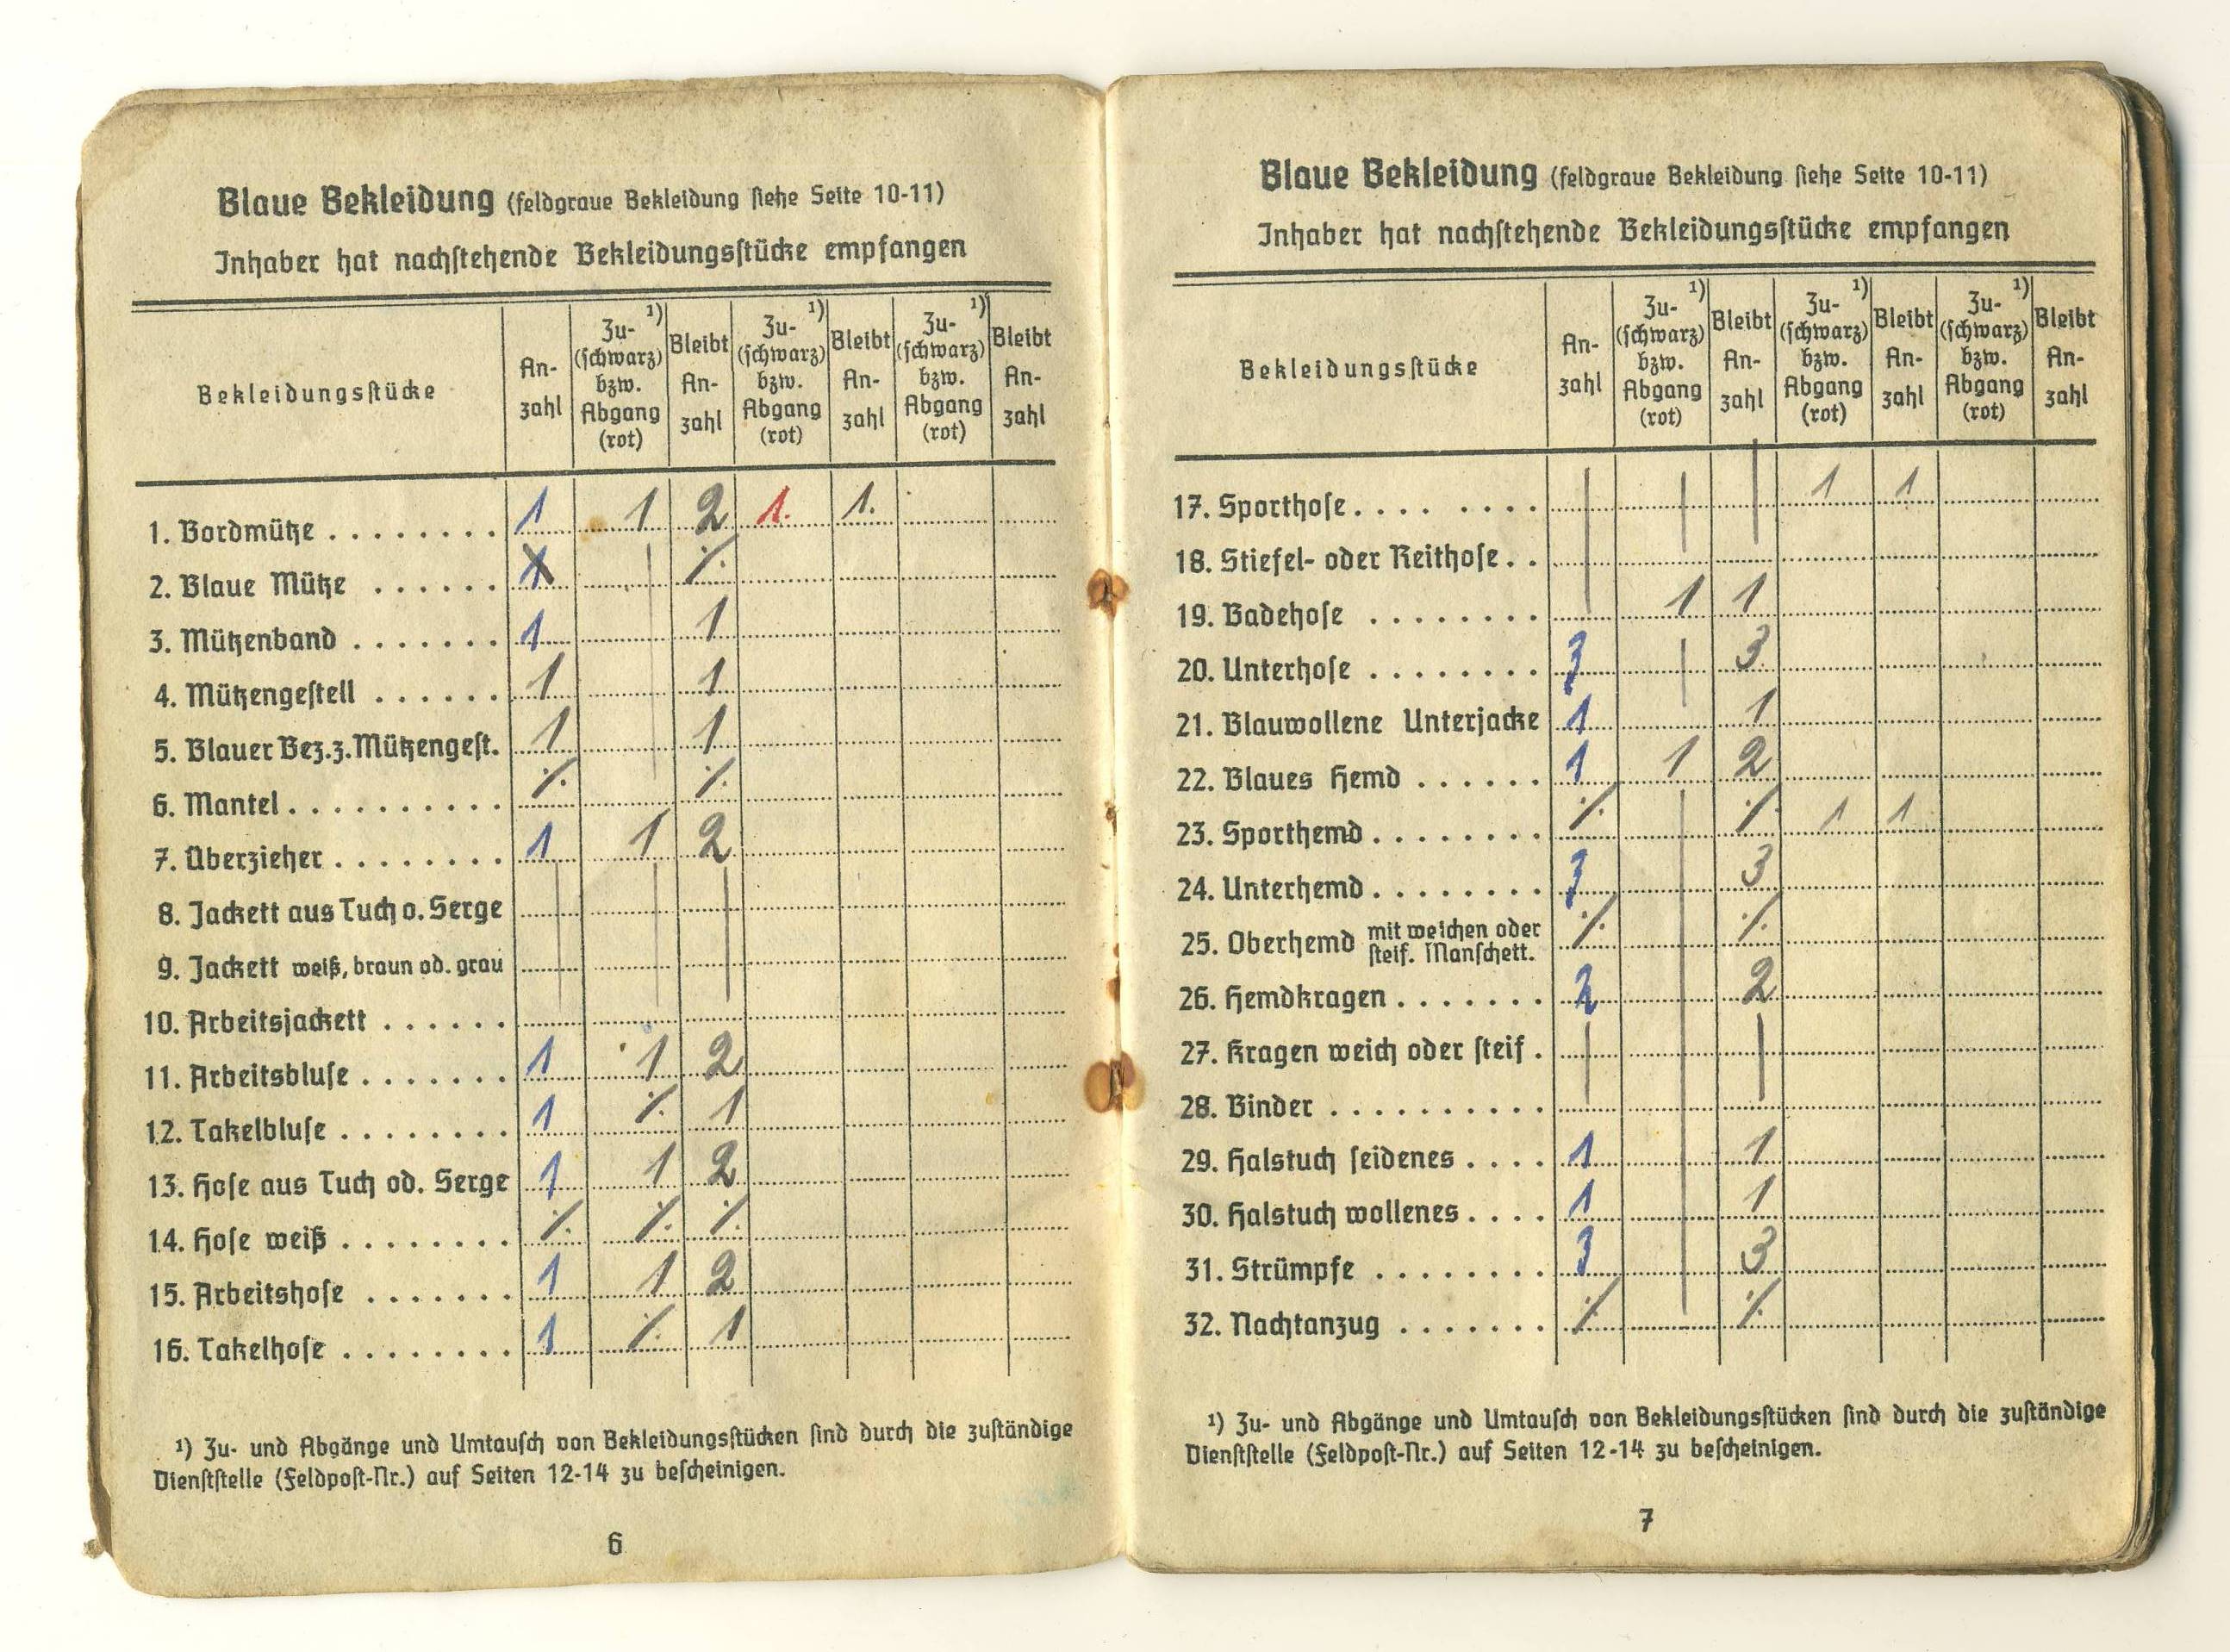 Blaue Bekleidung (feldgraue Bekleidung siehe Seite 10-11)
Inhaber hat nachstehende Bekleidungsstücke empfangen
Bekleidungsstücke An-zahl Zu- (schwarz) bzw. Abgang (rot) ¹) Bleibt An-zahl Zu- (schwarz) bzw. Abgang (rot) ¹) Bleibt An-zahl Zu- (schwarz) bzw. Abgang (rot) ¹) Bleibt An-zahl
1. Bordmütze ........ 1 1 2 1. 1.
2. Blaue Mütze ...... 1 | ·/.
3. Mützenband ....... 1 | 1
4. Mützengestell ...... 1 | 1
5. Blauer Bez.z.Mützengest. 1 | 1
6. Mantel .......... ·/. ·/.
7. Überzieher ........ 1 1 2
8. Jackett aus Tuch o. Serge | | |
9. Jackett weiß, braun od. grau | | |
10. Arbeitsjackett ......
11. Arbeitsbluse ....... 1 1 2
12. Takelbluse ........ 1 ·/. 1
13. Hose aus Tuch od. Serge 1 1 2
14. Hose weiß ........ ·/. ·/. ·/.
15. Arbeitshose ....... 1 1 2
16. Takelhose ........ 1 ·/. 1
¹) Zu- und Abgänge und Umtausch von Bekleidungsstücken sind durch die zuständige
Dienststelle (Feldpost-Nr.) auf Seiten 12-14 zu bescheinigen.
6
Blaue Bekleidung (feldgraue Bekleidung siehe Seite 10-11)
Inhaber hat nachstehende Bekleidungsstücke empfangen
Bekleidungsstücke An-zahl Zu- (schwarz) bzw. Abgang (rot) ¹) Bleibt An-zahl Zu- (schwarz) bzw. Abgang (rot) ¹) Bleibt An-zahl Zu- (schwarz) bzw. Abgang (rot) ¹) Bleibt An-zahl
17. Sporthose .... .... | | | 1 1
18. Stiefel- oder Reithose ..
19. Badehose ........ 1 1
20. Unterhose ........ 3 | 3
21. Blauwollene Unterjacke 1 1
22. Blaues Hemd ...... 1 1 2
23. Sporthemd ........ ·/. ·/. 1 1
24. Unterhemd ........ 3 3
25. Oberhemd mit weichen oder steif. Manschett. ·/. ·/.
26. Hemdkragen ....... 2 2
27. Kragen weich oder steif . | |
28. Binder ..........
29. Halstuch seidenes .... 1 1
30. Halstuch wollenes .... 1 1
31. Strümpfe ........ 3 3
32. Nachtanzug ....... ·/. ·/.
¹) Zu- und Abgänge und Umtausch von Bekleidungsstücken sind durch die zuständige
Dienststelle (Feldpost-Nr.) auf Seiten 12-14 zu bescheinigen.
7